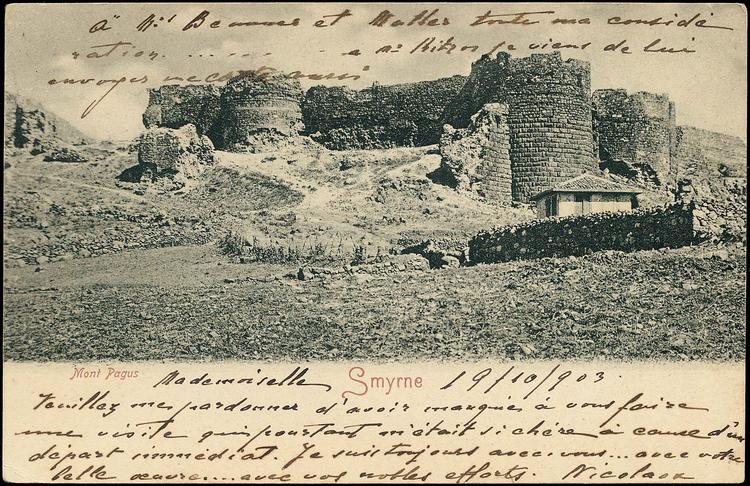 à Mr Beaumer et Muller toute ma considé
ration. ... ... ... a Mr Ritzos je viens de lui
envoyer une carte aussi
Mont Pagus
Mademoiselle
Smyrne
19/10/903.
Veuillez me pardonner d'avoir manquée à vous faire
une visite qui pourtant m'était si chère à cause d'un
départ immédiat. Je suis toujours avec vous... avec votre
belle œuvre.... avec vos nobles efforts. Nicolaou